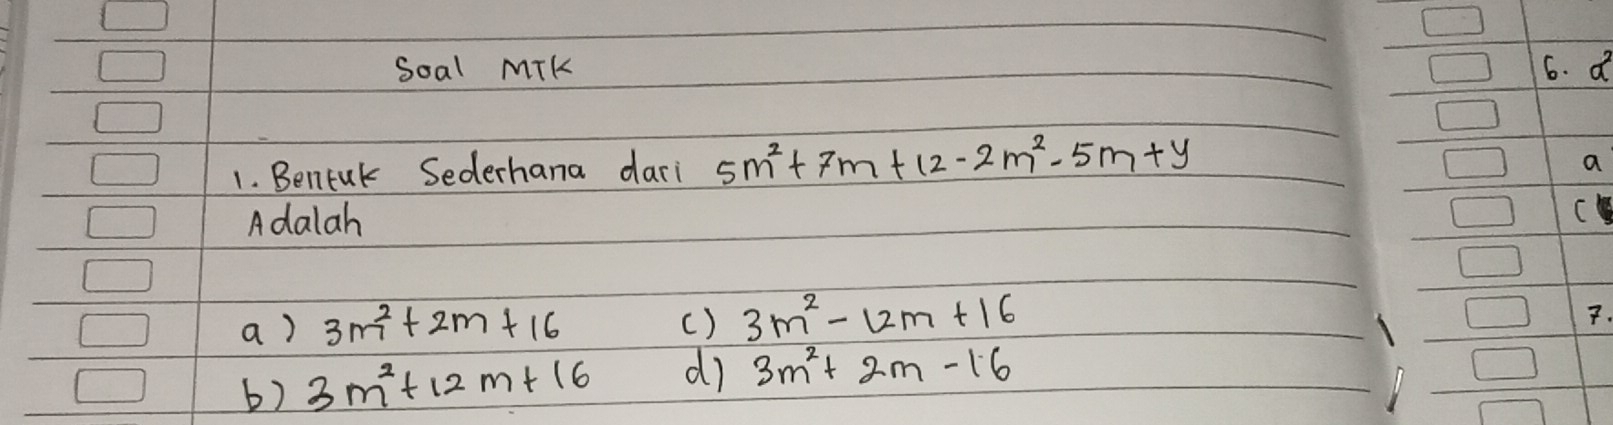 Soal MTK
1. Bentuk Sederhana dari 5m² + 7m + 12 - 2m² - 5m + y
Adalah
a) 3m² + 2m + 16 c) 3m² - 12m + 16
b) 3m² + 12m + 16 d) 3m² + 2m - 16
6. a²
a
c
7.